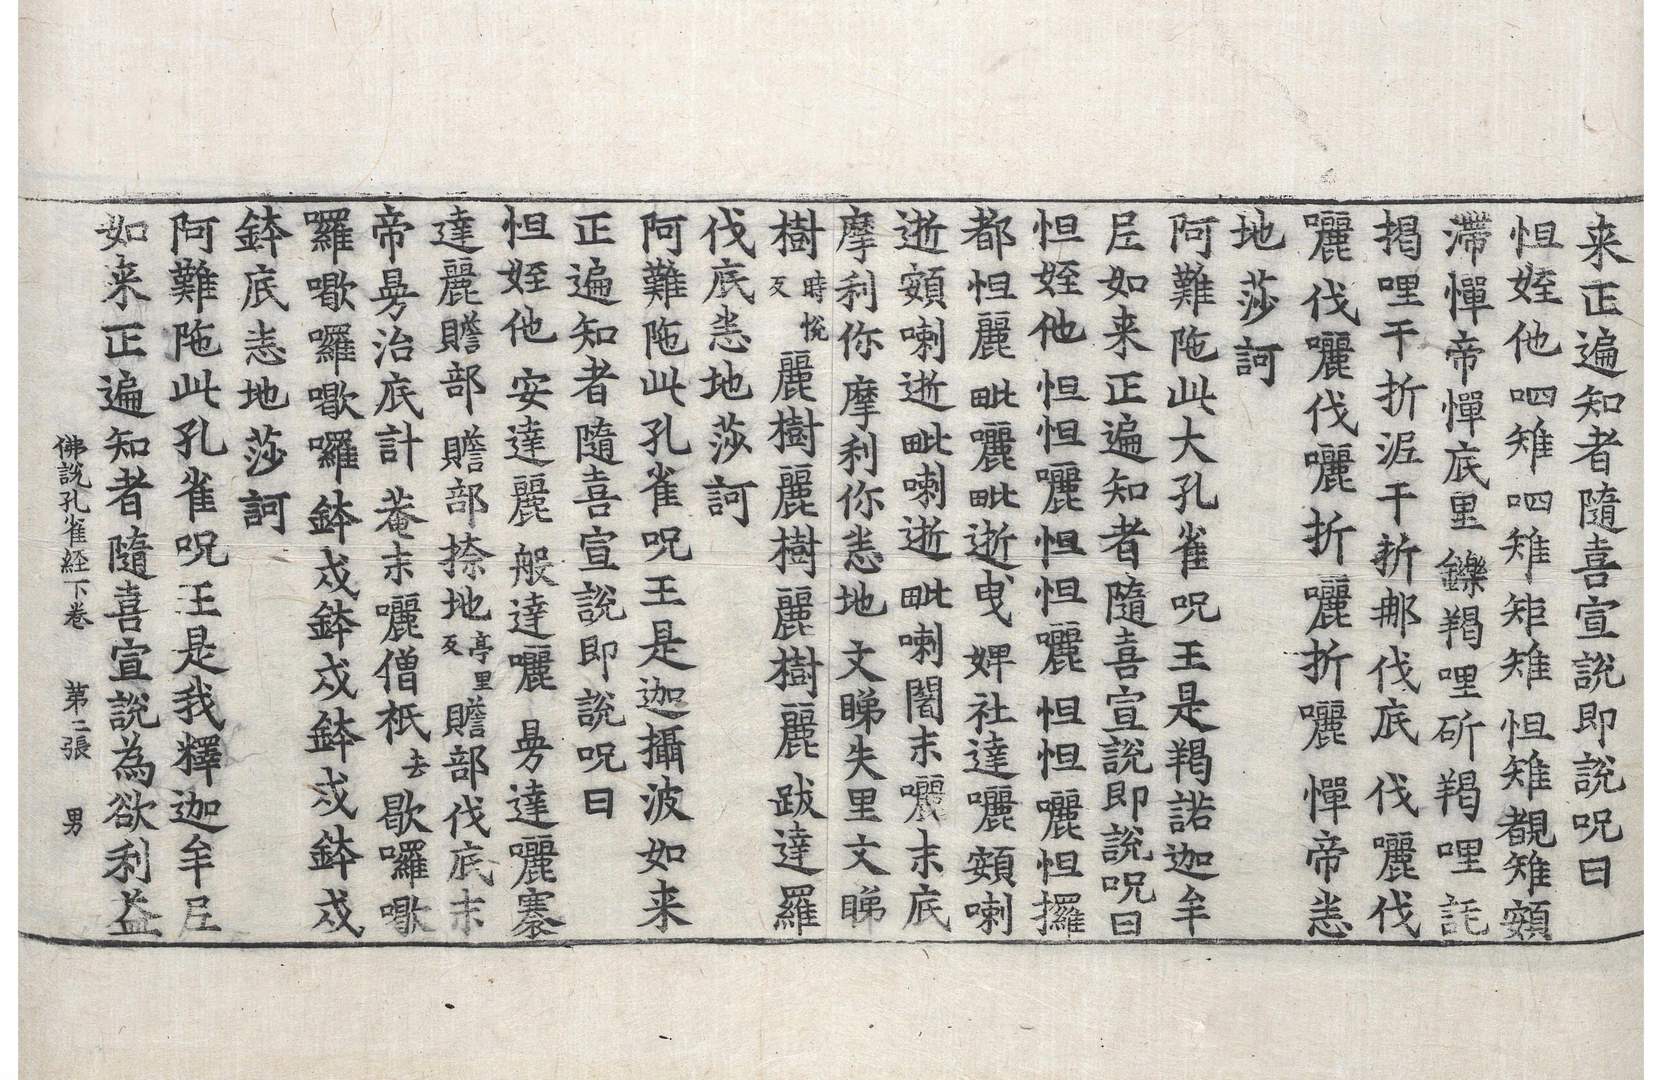 来正遍知者隨喜宣說即說呪曰
怛姪他 呬雉呬雉矩雉 怛雉覩雉頞
滯憚帝憚底里 鑠羯哩斫羯哩託
揭哩干折泥干折那伐底 伐麗伐
囇伐囇伐囇折囇折囇 憚帝恙
地莎訶
阿難陁此大孔雀呪王是羯諾迦牟
尼如来正遍知者隨喜宣說即說呪曰
怛姪他 怛怛囇怛怛囇 怛怛囇怛攞
都怛麗 毗囇毗逝曳 婢社達囇頞喇
逝頞喇逝毗喇逝毗喇闍末囇末底
摩利你 摩利你恙地 文睇失里文睇
樹時悅反麗樹麗樹麗樹麗跋達羅
伐底恙地莎訶
阿難陁此孔雀呪王是迦攝波如来
正遍知者隨喜宣說即說呪曰
怛姪他 安達麗 般達囇 曼達囇褰
達麗贍部 贍部捺地亭里反贍部伐底末
帝曼治底計 菴末囇僧祇去歇囉囇
囉囇囉囇囉 鉢戍鉢戍鉢戍鉢戍
鉢底恙地莎訶
阿難陁此孔雀呪王是我釋迦牟尼
如来正遍知者隨喜宣說為欲利益
佛說孔雀経下卷 第二張 男